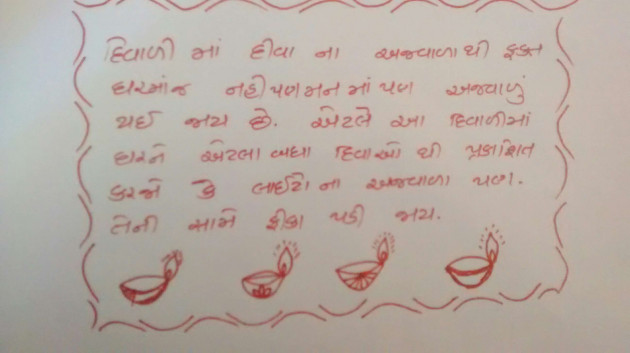 દિવાળી માં દીવા ના અજવાળા થી ફક્ત
ઘરમાંજ નહી પણ મન માં પણ અજવાળું
થઈ જાય છે. એટલે આ દિવાળીમાં
ઘરને એટલા બધા દિવાઓ થી પ્રકાશિત
કરજો કે લાઈટો ના અજવાળા પણ.
તેની સામે ફીકા પડી જાય.